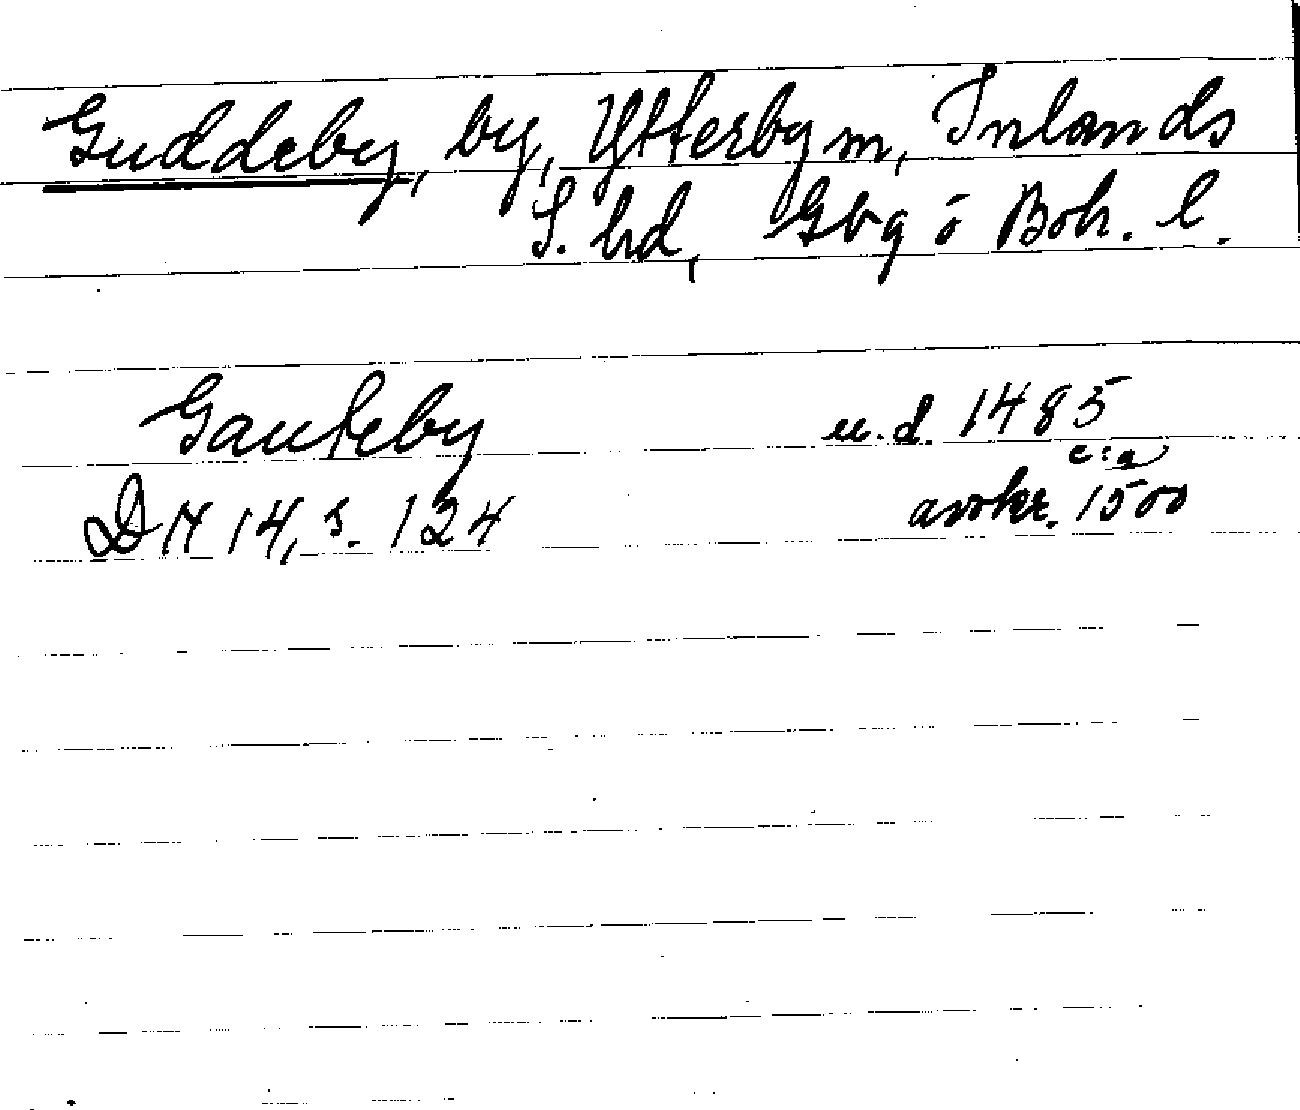 Guddeby, by, Ytterby sn, Inlands
S. hd, Gbg o Boh. l.
Gauteby u.d. 1485
c:a
DN 14, s. 124 avskr. 1500